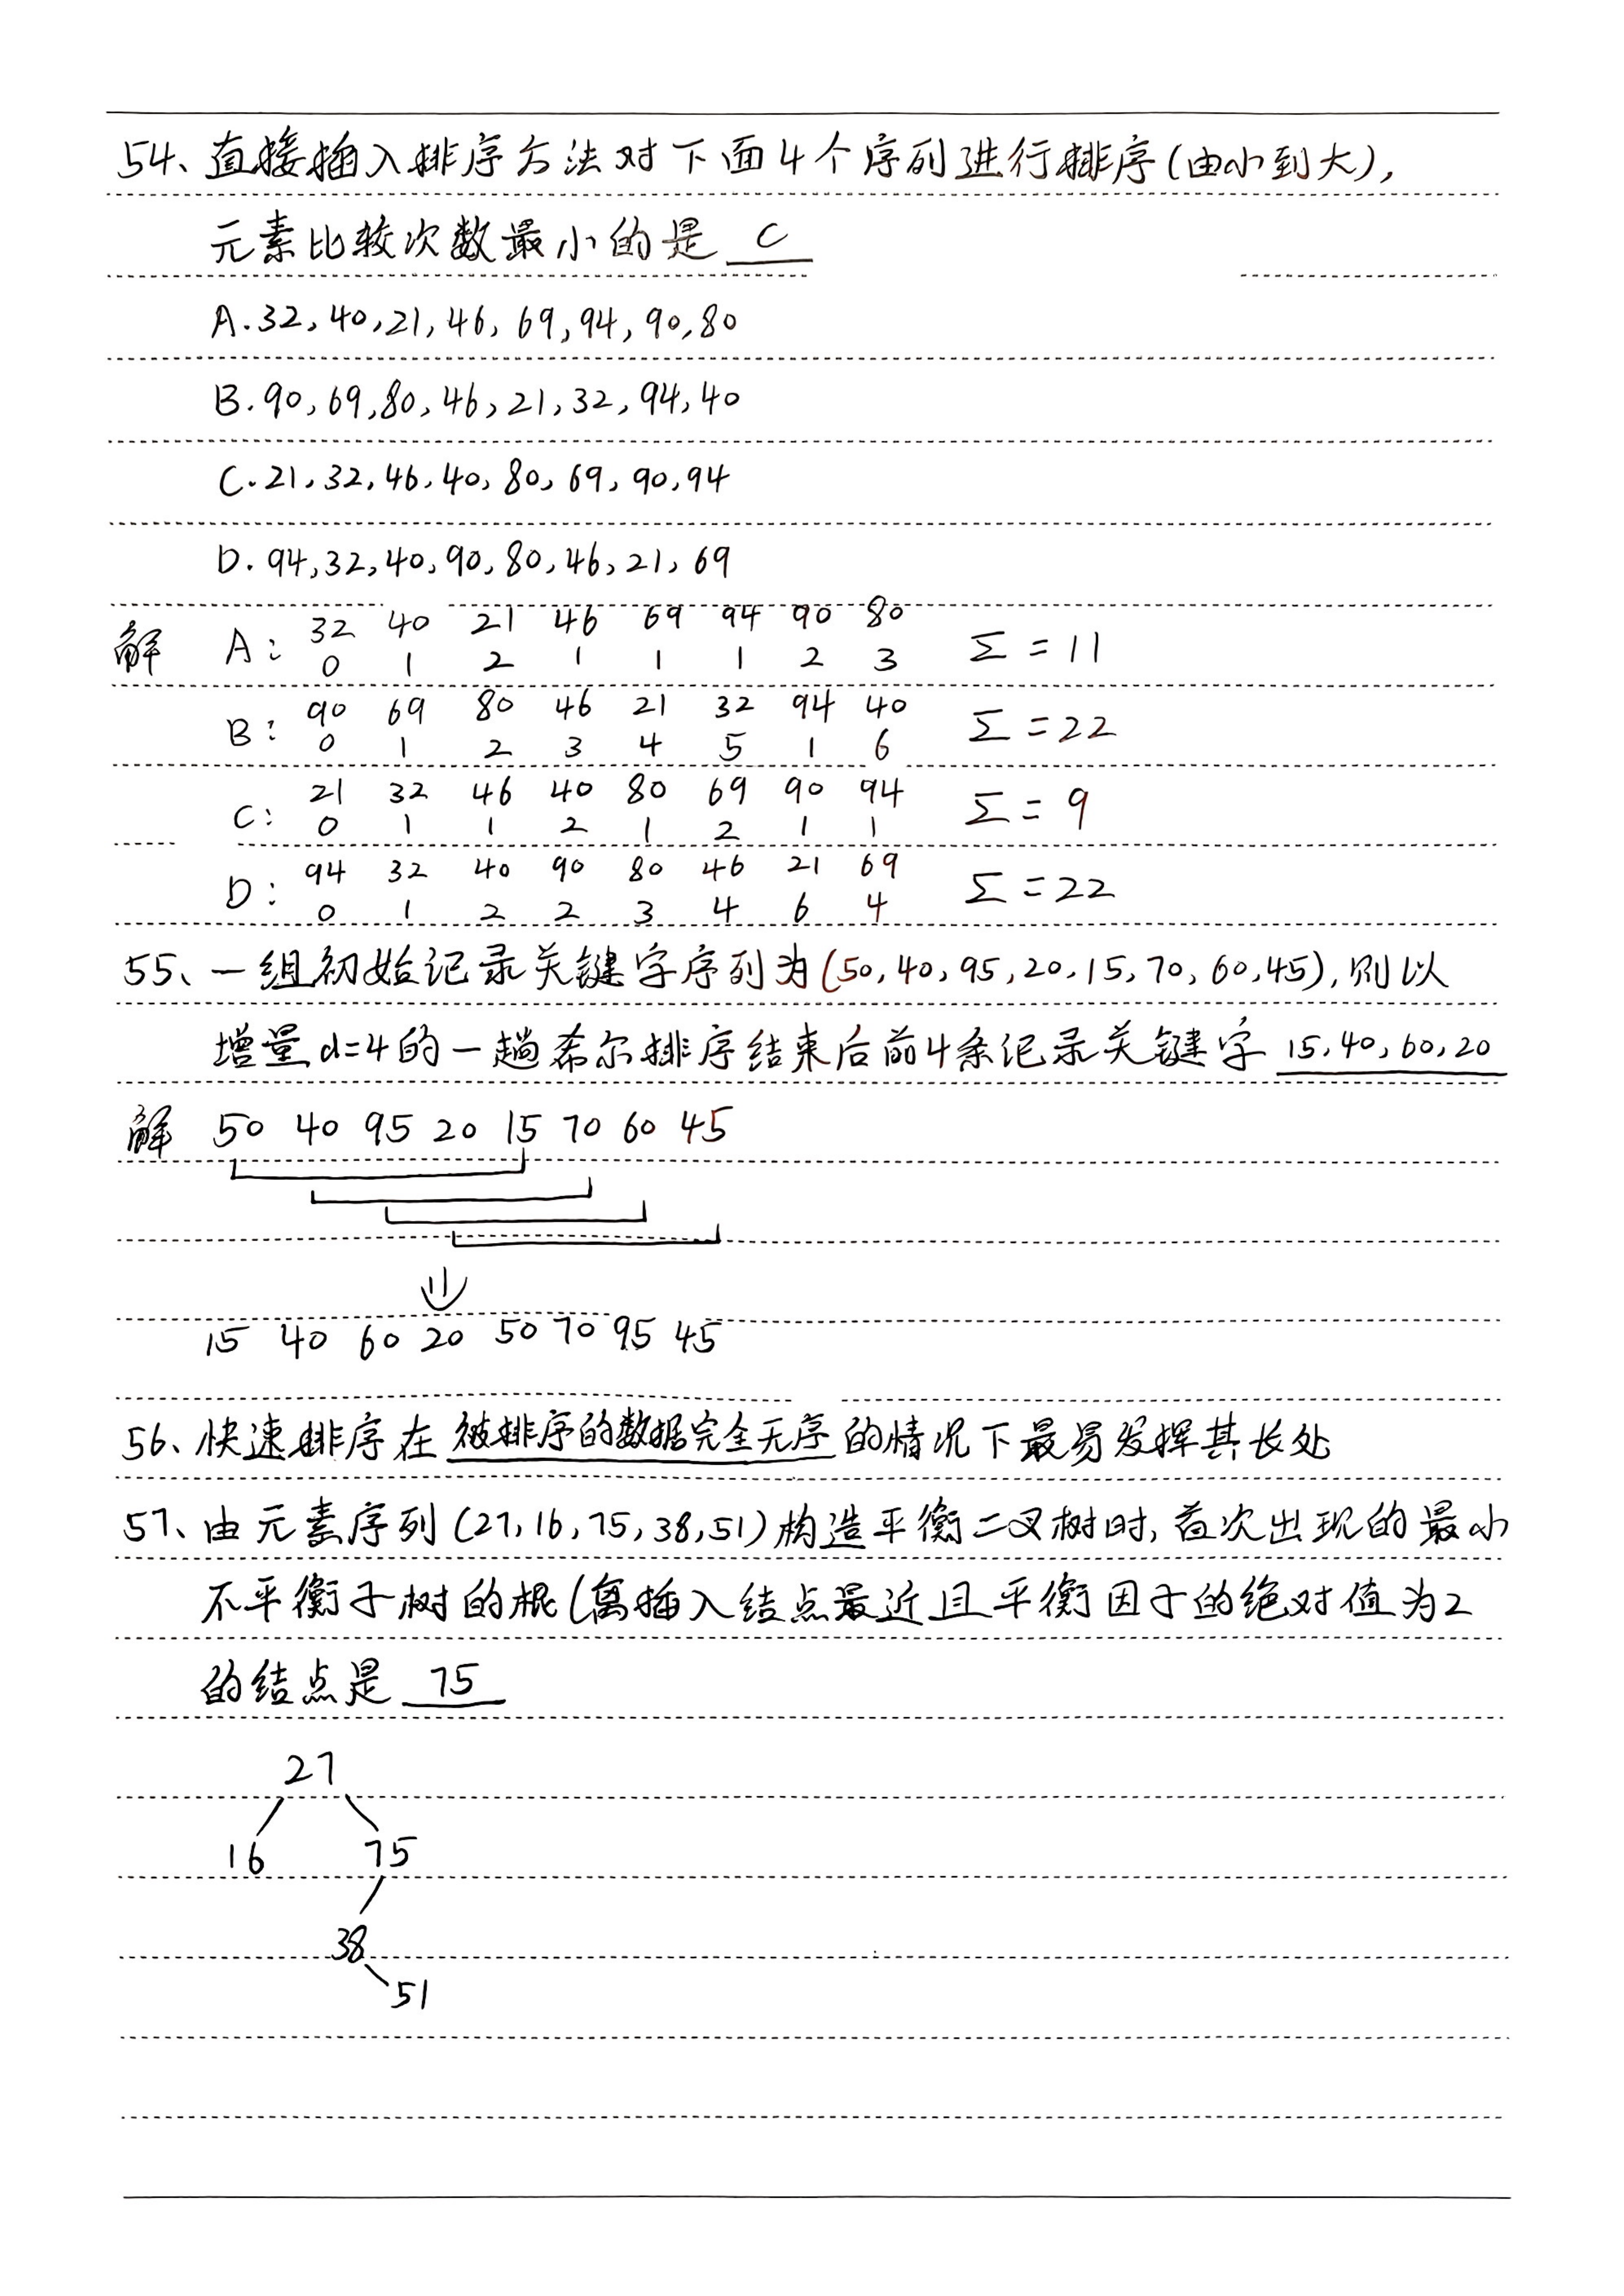 54、直接插入排序方法对下面4个序列进行排序(由小到大),
元素比较次数最小的是 C
A.32,40,21,46,69,94,90,80
B.90,69,80,46,21,32,94,40
C.21,32,46,40,80,69,90,94
D.94,32,40,90,80,46,21,69
解 A: 32 40 21 46 69 94 90 80
0 1 2 1 1 1 2 3 Σ=11
B: 90 69 80 46 21 32 94 40
0 1 2 3 4 5 1 6 Σ=22
C: 21 32 46 40 80 69 90 94
0 1 1 2 1 2 1 1 Σ=9
D: 94 32 40 90 80 46 21 69
0 1 2 2 3 4 6 4 Σ=22
55、一组初始记录关键字序列为(50,40,95,20,15,70,60,45),则以
增量d=4的一趟希尔排序结束后前4条记录关键字 15,40,60,20
解 50 40 95 20 15 70 60 45
15 40 60 20 50 70 95 45
56、快速排序在被排序的数据完全无序的情况下最易发挥其长处
57、由元素序列(27,16,75,38,51)构造平衡二叉树时,首次出现的最小
不平衡子树的根(离插入结点最近且平衡因子的绝对值为2
的结点是 75
27
16 75
38
51